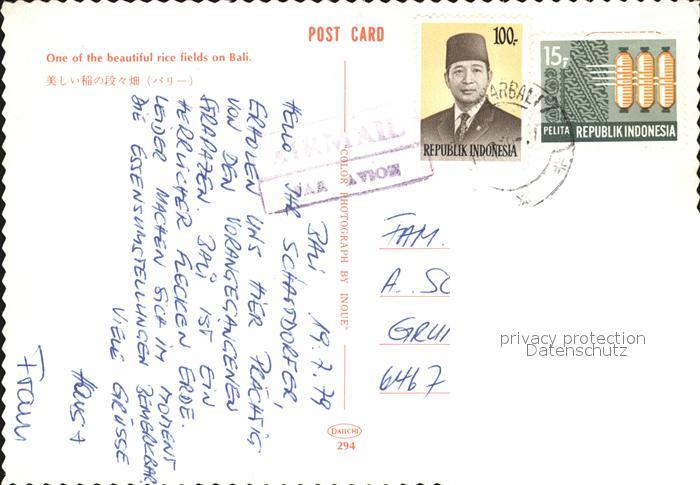 POST CARD
One of the beautiful rice fields on Bali.
美しい稲の段々畑（バリー）
100,-
REPUBLIK INDONESIA
15,-
PELITA REPUBLIK INDONESIA
AIR MAIL
PAR AVION
COLOR PHOTOGRAPH BY INOUE
DAIICHI
294
BALI 19.7.79
HALLO IHR SCHAFDORFER,
ERHOLEN UNS HIER PRÄCHTIG
VON DEN VORANGEGANGENEN
STRAPAZEN. BALI IST EIN
HERRLICHER FLECKEN ERDE.
LEIDER MACHEN SICH IM MOMENT
DIE ESSENSUMSTELLUNGEN BEMERKBAR.
VIELE GRÜSSE
HANS +
FAM.
A. SC
GRU
6467
privacy protection
Datenschutz